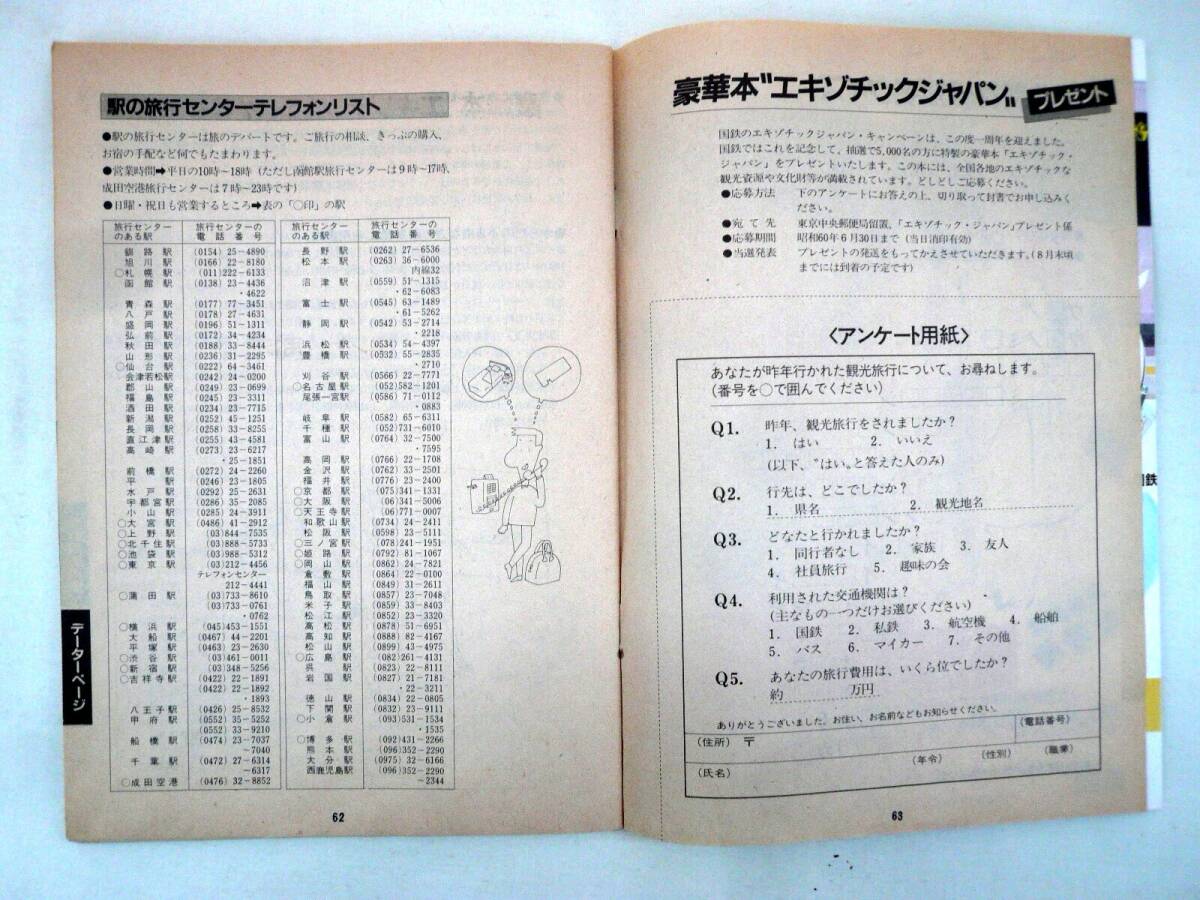 駅の旅行センターテレフォンリスト
●駅の旅行センターは旅のデパートです。ご旅行の相談、きっぷの購入、
お宿の手配など何でもたまわります。
●営業時間➡平日の10時〜18時 (ただし函館駅旅行センターは9時〜17時、
成田空港旅行センターは7時〜23時です)
●日曜・祝日も営業するところ➡表の「○印」の駅
旅行センターのある駅 旅行センターの電話番号
釧路駅 (0154) 25-4890
旭川駅 (0166) 22-8180
○札幌駅 (011)222-6133
函館駅 (0138) 23-4436
・4622
青森駅 (0177) 77-3451
八戸駅 (0178) 27-4631
盛岡駅 (0196) 51-1311
弘前駅 (0172) 34-4234
秋田駅 (0188) 33-8444
山形駅 (0236) 31-2295
○仙台駅 (0222) 64-3461
会津若松駅 (0242) 24-0200
郡山駅 (0249) 23-0699
福島駅 (0245) 23-3311
酒田駅 (0234) 23-7715
新潟駅 (0252) 45-1251
長岡駅 (0258) 33-8255
直江津駅 (0255) 43-4581
高崎駅 (0273) 23-6217
・25-1851
前橋駅 (0272) 24-2260
平駅 (0246) 23-1805
水戸駅 (0292) 25-2631
宇都宮駅 (0286) 35-2085
小山駅 (0285) 24-3911
○大宮駅 (0486) 41-2912
○上野駅 (03)844-7535
○北千住駅 (03)888-5733
○池袋駅 (03)988-5312
○東京駅 (03)212-4456
テレフォンセンター
212-4441
○蒲田駅 (03)733-8610
(03)733-0761
・0762
○横浜駅 (045)453-1551
大船駅 (0467) 44-2201
平塚駅 (0463) 23-2630
○渋谷駅 (03)461-0011
○新宿駅 (03)348-5256
○吉祥寺駅 (0422) 22-1891
(0422) 22-1892
・1893
八王子駅 (0426) 25-8532
甲府駅 (0552) 35-5252
(0552) 33-9210
船橋駅 (0474) 23-7037
〜7040
千葉駅 (0472) 27-6314
〜6317
○成田空港 (0476) 32-8852
旅行センターのある駅 旅行センターの電話番号
長野駅 (0262) 27-6536
松本駅 (0263) 36-6000
内線32
沼津駅 (0559) 51-1315
・62-6083
富士駅 (0545) 63-1489
・61-5262
静岡駅 (0542) 53-2714
・2218
浜松駅 (0534) 54-4397
豊橋駅 (0532) 55-2835
・2710
刈谷駅 (0566) 22-7771
○名古屋駅 (052)582-1201
尾張一宮駅 (0586) 71-0112
・0883
岐阜駅 (0582) 65-6311
千種駅 (052)731-6010
富山駅 (0764) 32-7500
・7595
高岡駅 (0766) 22-1708
金沢駅 (0762) 33-2501
福井駅 (0776) 23-2400
○京都駅 (075)341-1331
○大阪駅 (06)341-5006
○天王寺駅 (06)771-0007
和歌山駅 (0734) 24-2411
松阪駅 (0598) 23-5111
○三ノ宮駅 (078)241-1951
○姫路駅 (0792) 81-1067
○岡山駅 (0862) 24-7821
倉敷駅 (0864) 22-0100
福山駅 (0849) 31-2611
鳥取駅 (0857) 23-7048
米子駅 (0859) 33-8403
松江駅 (0852) 23-3320
高松駅 (0878) 51-6951
高知駅 (0888) 82-4167
松山駅 (0899) 43-4975
○広島駅 (082)261-4131
呉駅 (0823) 22-8111
岩国駅 (0827) 21-7181
・22-3211
徳山駅 (0834) 22-0805
下関駅 (0832) 23-9111
○小倉駅 (093)531-1534
・1535
○博多駅 (092)431-2266
熊本駅 (096)352-2290
大分駅 (0975) 32-6166
西鹿児島駅 (096)352-2290
〜2344
データーページ
62
豪華本〝エキゾチックジャパン〟 プレゼント
国鉄のエキゾチックジャパン・キャンペーンは、この度一周年を迎えました。
国鉄ではこれを記念して、抽選で5,000名の方に特製の豪華本「エキゾチック・
ジャパン」をプレゼントいたします。この本には、全国各地のエキゾチックな
観光資源や文化財等が満載されています。どしどしご応募ください。
●応募方法 下のアンケートにお答えの上、切り取って封書でお申し込みく
ださい。
●宛て先 東京中央郵便局留置、「エキゾチック・ジャパン」プレゼント係
●応募期間 昭和60年6月30日まで (当日消印有効)
●当選発表 プレゼントの発送をもってかえさせていただきます。(8月末頃
までには到着の予定です)
〈アンケート用紙〉
あなたが昨年行かれた観光旅行について、お尋ねします。
(番号を○で囲んでください)
Q1. 昨年、観光旅行をされましたか?
1. はい 2. いいえ
(以下、〝はい〟と答えた人のみ)
Q2. 行先は、どこでしたか?
1. 県名 2. 観光地名
Q3. どなたと行かれましたか?
1. 同行者なし 2. 家族 3. 友人
4. 社員旅行 5. 趣味の会
Q4. 利用された交通機関は?
(主なもの一つだけお選びください)
1. 国鉄 2. 私鉄 3. 航空機 4. 船舶
5. バス 6. マイカー 7. その他
Q5. あなたの旅行費用は、いくら位でしたか?
約 万円
ありがとうございました。お住い、お名前などもお知らせください。
(住所) 〒 (電話番号)
(氏名) (年令) (性別) (職業)
63
国鉄